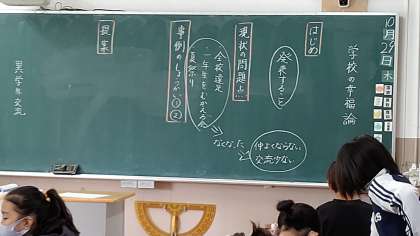 10月29日 木
学校の幸福論
はじめ
発表すること
仲よくならない
交流少ない
現状の問題点
なくなった
全校遠足
・一年生をむかえる会
夏祭り
事例のしょうかい①②
提案
異学年交流